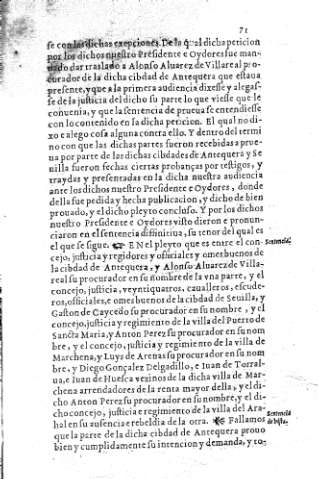 71
se con las dichas exepciones. De la qual dicha peticion
por los dichos nuestro Presidente e Oydores fue man-
dado dar traslado a Alonso Aluarez de Villareal pro-
curador de la dicha cibdad de Antequera que estaua
presente, y que a la primera audiencia dixesse y alegas-
se de la justicia del dicho su parte lo que viesse que le
conuenia, y que la sentencia de prueua se entendiesse
con lo contenido en la dicha peticion. El qual no di-
xo e alego cosa alguna contra ello. Y dentro del termi
no con que las dichas partes fueron recebidas a prue-
ua por parte de las dichas cibdades de Antequera y Se
uilla fueron fechas ciertas probanças por testigos, y
traydas y presentadas en la dicha nuestra audiencia
ante los dichos nuestro Presidente e Oydores, donde
della fue pedida y hecha publicacion, y dicho de bien
prouado, y el dicho pleyto concluso. Y por los dichos
nuestro Presidente e Oydores visto dieron e pronun-
ciaron en el sentencia diffinitiua, su tenor del qual es
el que se sigue. EN el pleyto que es entre el con-
Sentencia.
cejo, justicia y regidores y officiales y omes buenos de
la cibdad de Antequera, y Alonso Aluarez de Villa-
real su procurador en su nombre de la vna parte, y el
concejo, justicia, veyntiquatros, caualleros, escude-
ros, officiales, e omes buenos de la cibdad de Seuilla, y
Gaston de Caycedo su procurador en su nombre, y el
concejo, justicia y regimiento de la villa del Puerto de
Sancta Maria, y Anton Perez su procurador en su nom
bre, y el concejo, justicia y regimiento de la villa de
Marchena, y Luys de Arenas su procurador en su nom
bre, y Diego Gonçalez Delgadillo, e Iuan de Torral-
ua, e Iuan de Huesca vezinos de la dicha villa de Mar-
chena arrendadores de la renta mayor della, y el di-
cho Anton Perez su procurador en su nombre, y el di-
cho concejo, justicia e regimiento de la villa del Ara-
hal en su ausencia e rebeldia de la otra. Fallamos
Sentencia
de vista.
que la parte de la dicha cibdad de Antequera prouo
bien y cumplidamente su intencion y demanda, y to-